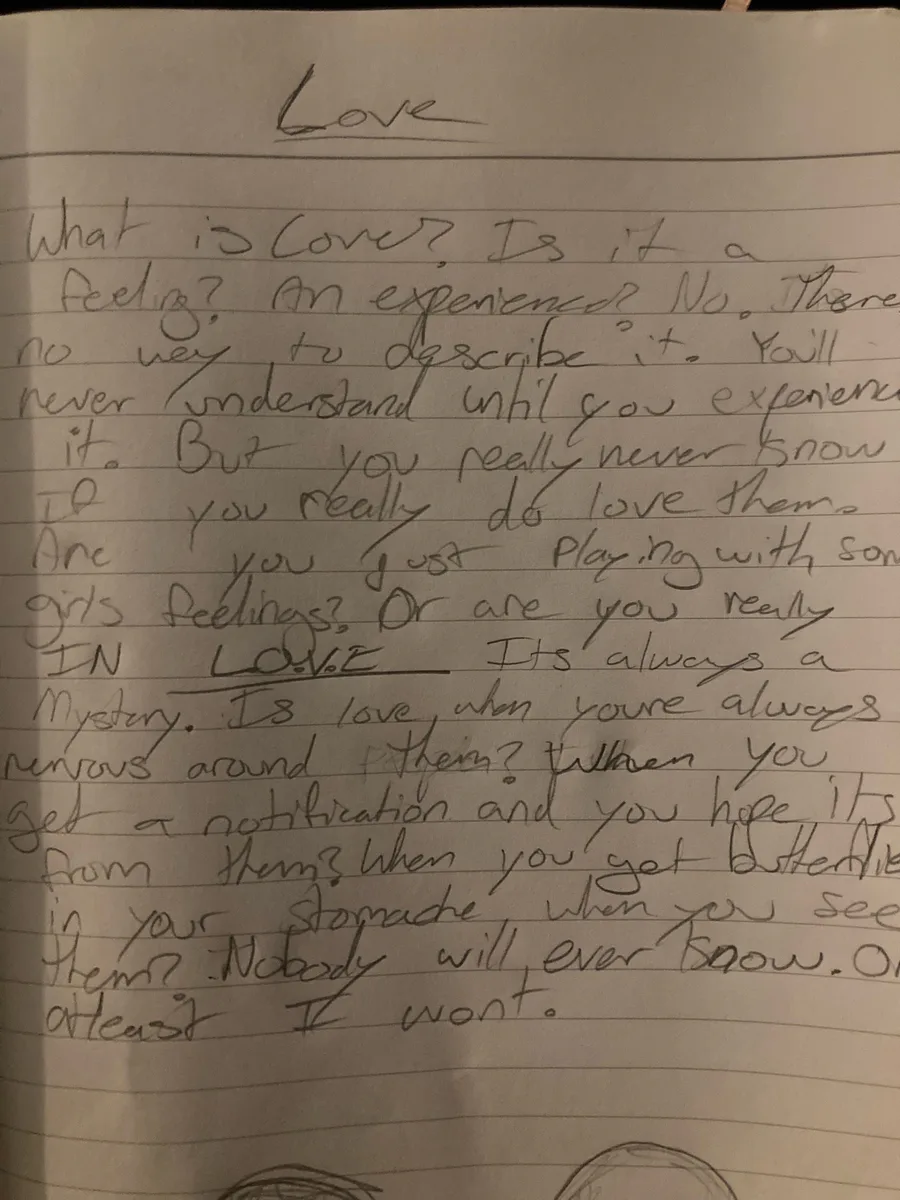 Love
What is Love? Is it a
feeling? An experience? No. There
no way to describe it. You'll
never understand until you experienc
it. But you really never know
If you really do love them.
Are you just Playing with som
girls feelings? Or are you really
IN L.O.V.E Its always a
Mystery. Is love, when youre always
nervous around them? When you
get a notification and you hope its
from them? When you get butterflie
in your stomache, when you see
them? Nobody will ever know. Or
atleast I wont.